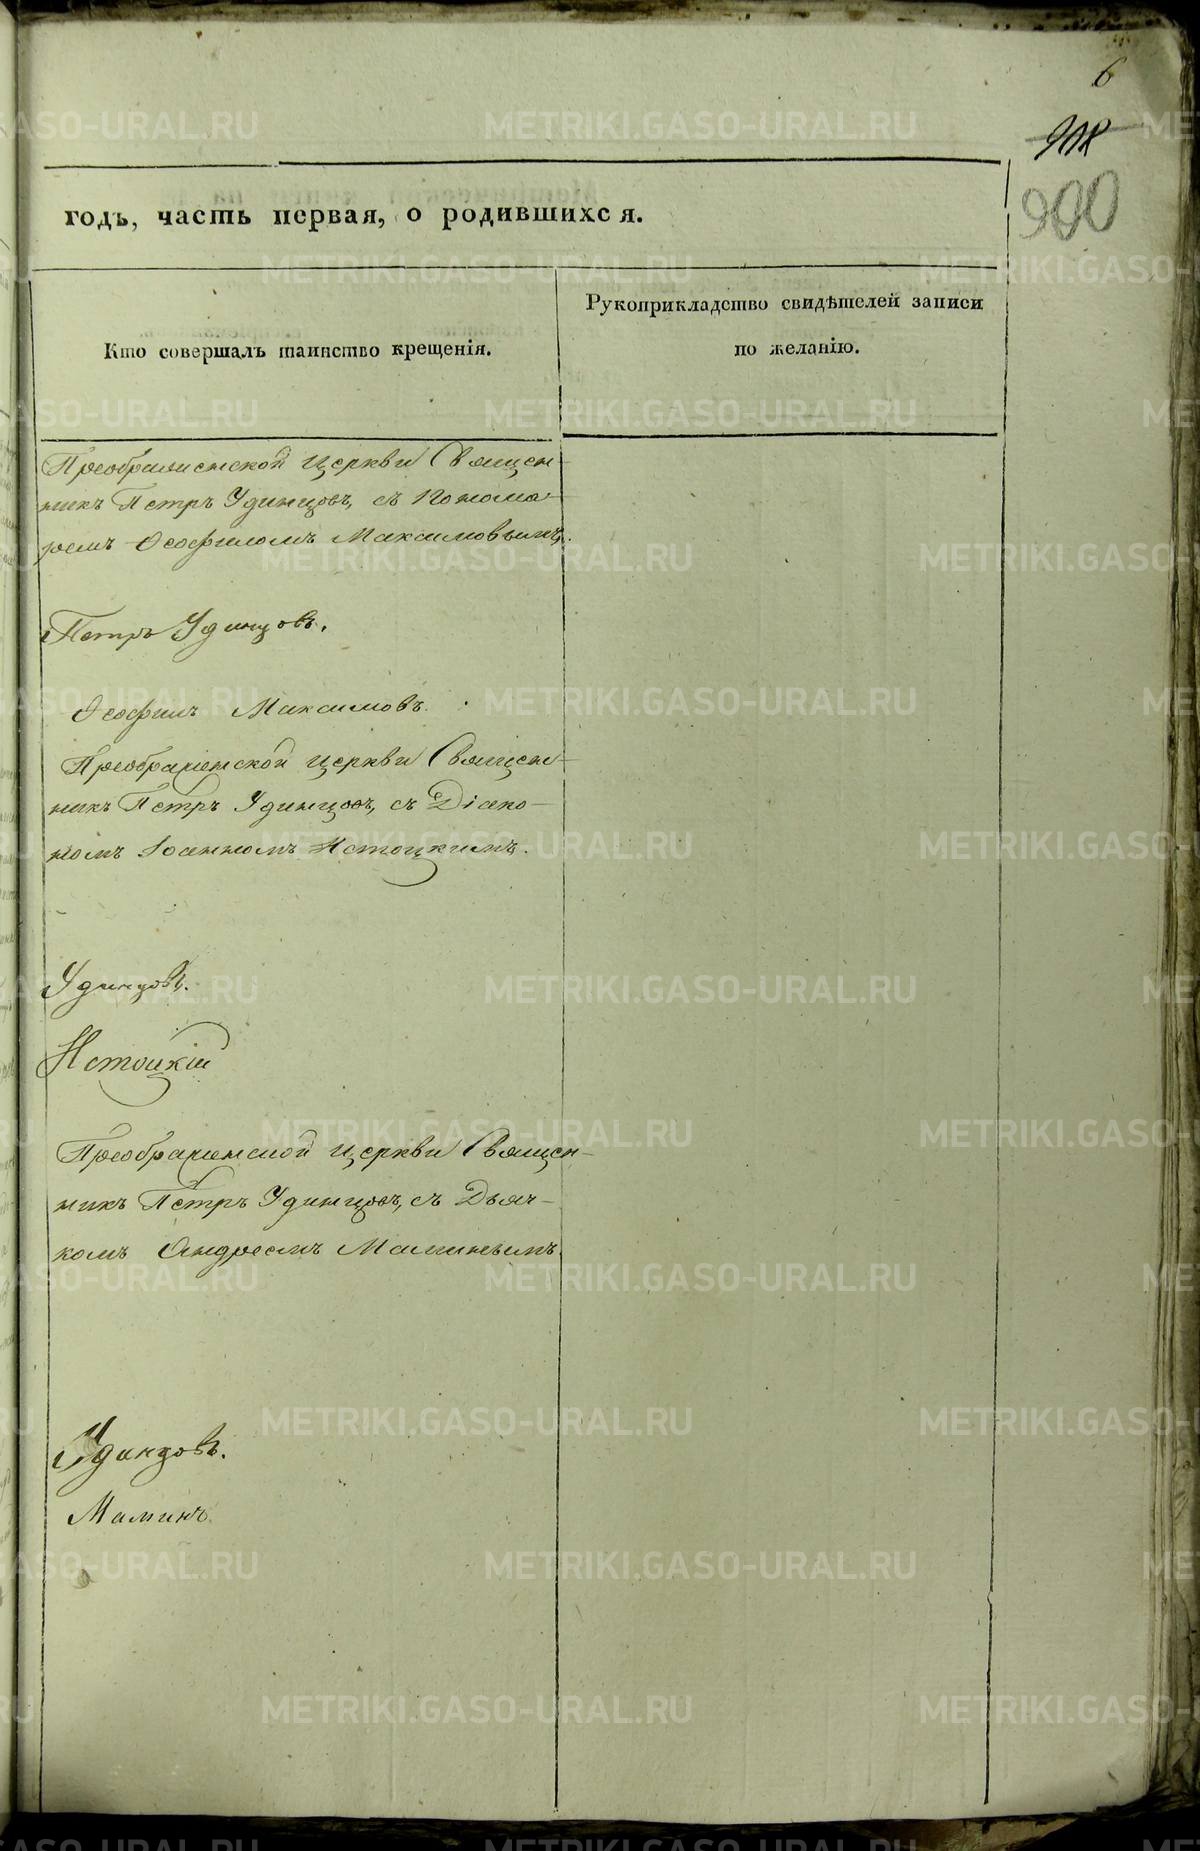 6
908
900
годъ, часть первая, о родившихся.
Кто совершалъ таинство крещенія.
Рукоприкладство свидѣтелей записи
по желанію.
Преображенской церкви Священ-
никъ Петръ Удинцовъ, съ Понома-
ремъ Ѳеофиломъ Максимовымъ.
Петръ Удинцовъ.
Ѳеофилъ Максимовъ.
Преображенской церкви Священ-
никъ Петръ Удинцовъ, съ Діако-
номъ Іоанномъ Истоцкимъ.
Удинцовъ.
Истоцкій
Преображенской церкви Священ-
никъ Петръ Удинцовъ, съ Дьяч-
комъ Андреемъ Маминымъ.
Удинцовъ.
Маминъ.
METRIKI.GASO-URAL.RU